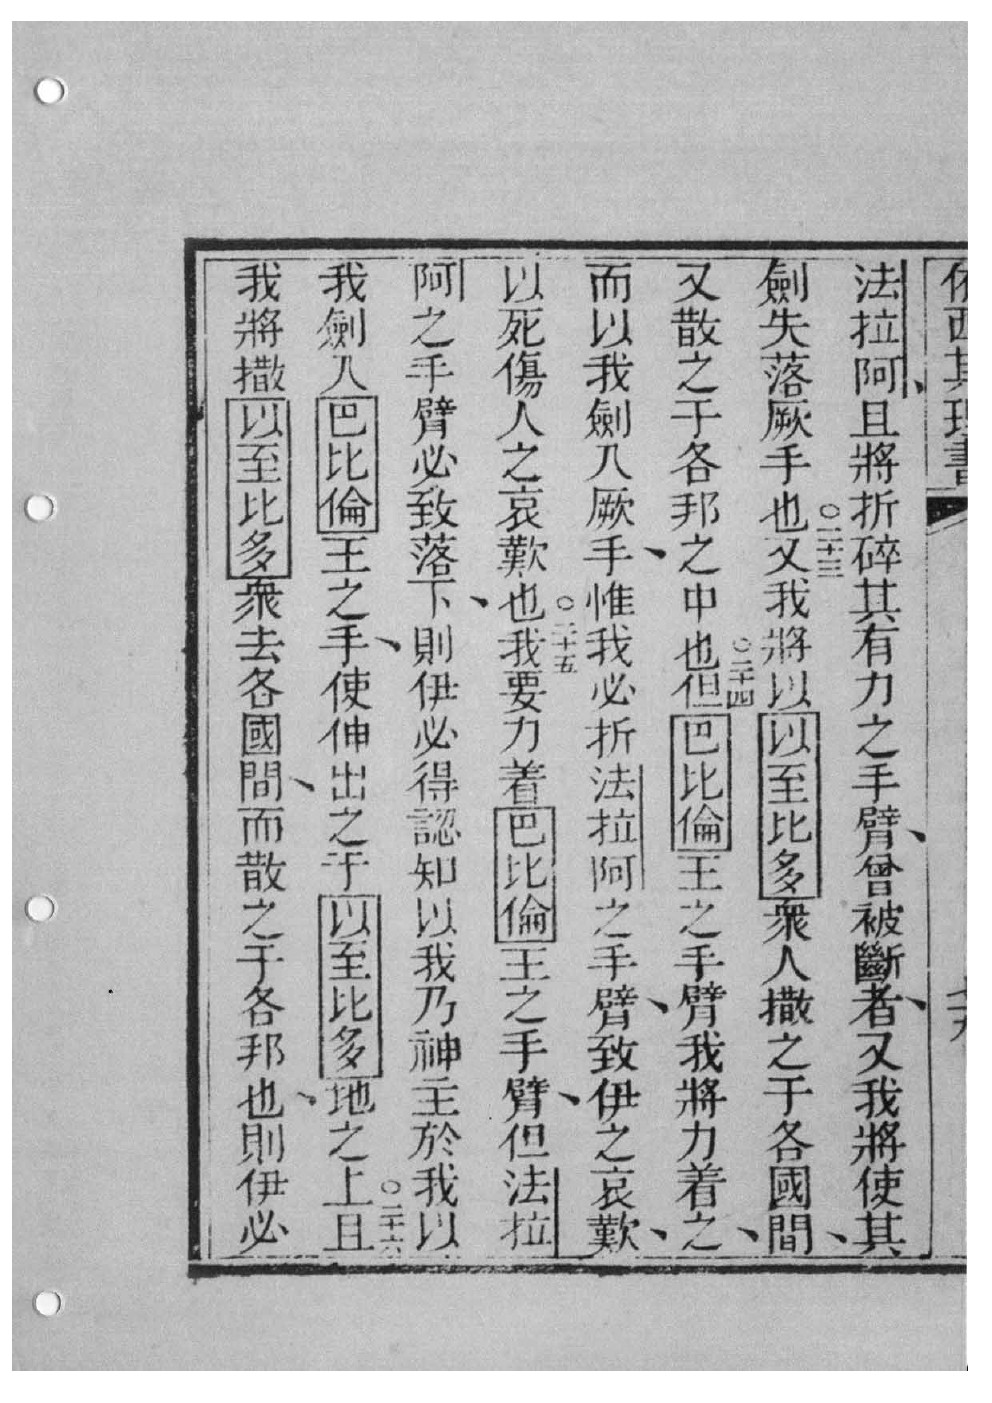 依西其理書
法拉阿、且將折碎其有力之手臂、曾被斷者、又我將使其
劍失落厥手也○二十三又我將以以至比多衆人撒之于各國間、
又散之于各邦之中也○二十四但巴比倫王之手臂我將力着之、
而以我劍入厥手、惟我必折法拉阿之手臂、致伊之哀歎、
以死傷人之哀歎也○二十五我要力着巴比倫王之手臂、但法拉
阿之手臂必致落下、則伊必得認知以我乃神主於我以
我劍入巴比倫王之手、使伸出之于以至比多地之上○二十六且
我將撒以至比多衆去各國間、而散之于各邦也、則伊必